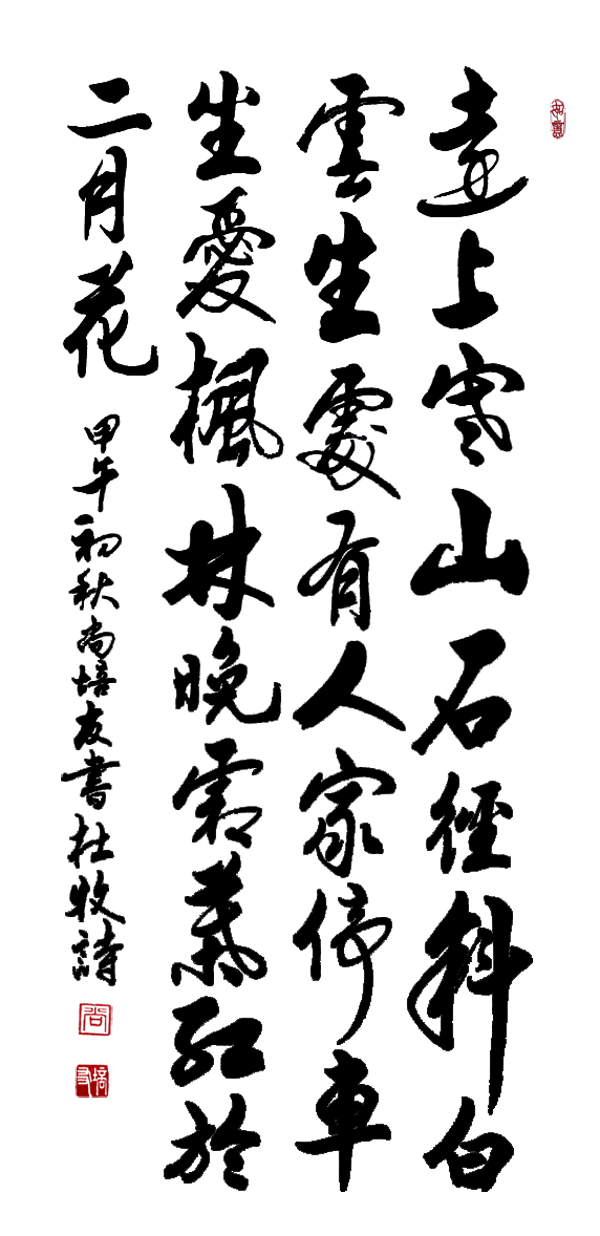 遠上寒山石徑斜白
雲生處有人家停車
坐愛楓林晚霜葉紅於
二月花 甲午初秋尚培友書杜牧詩
尚
培友